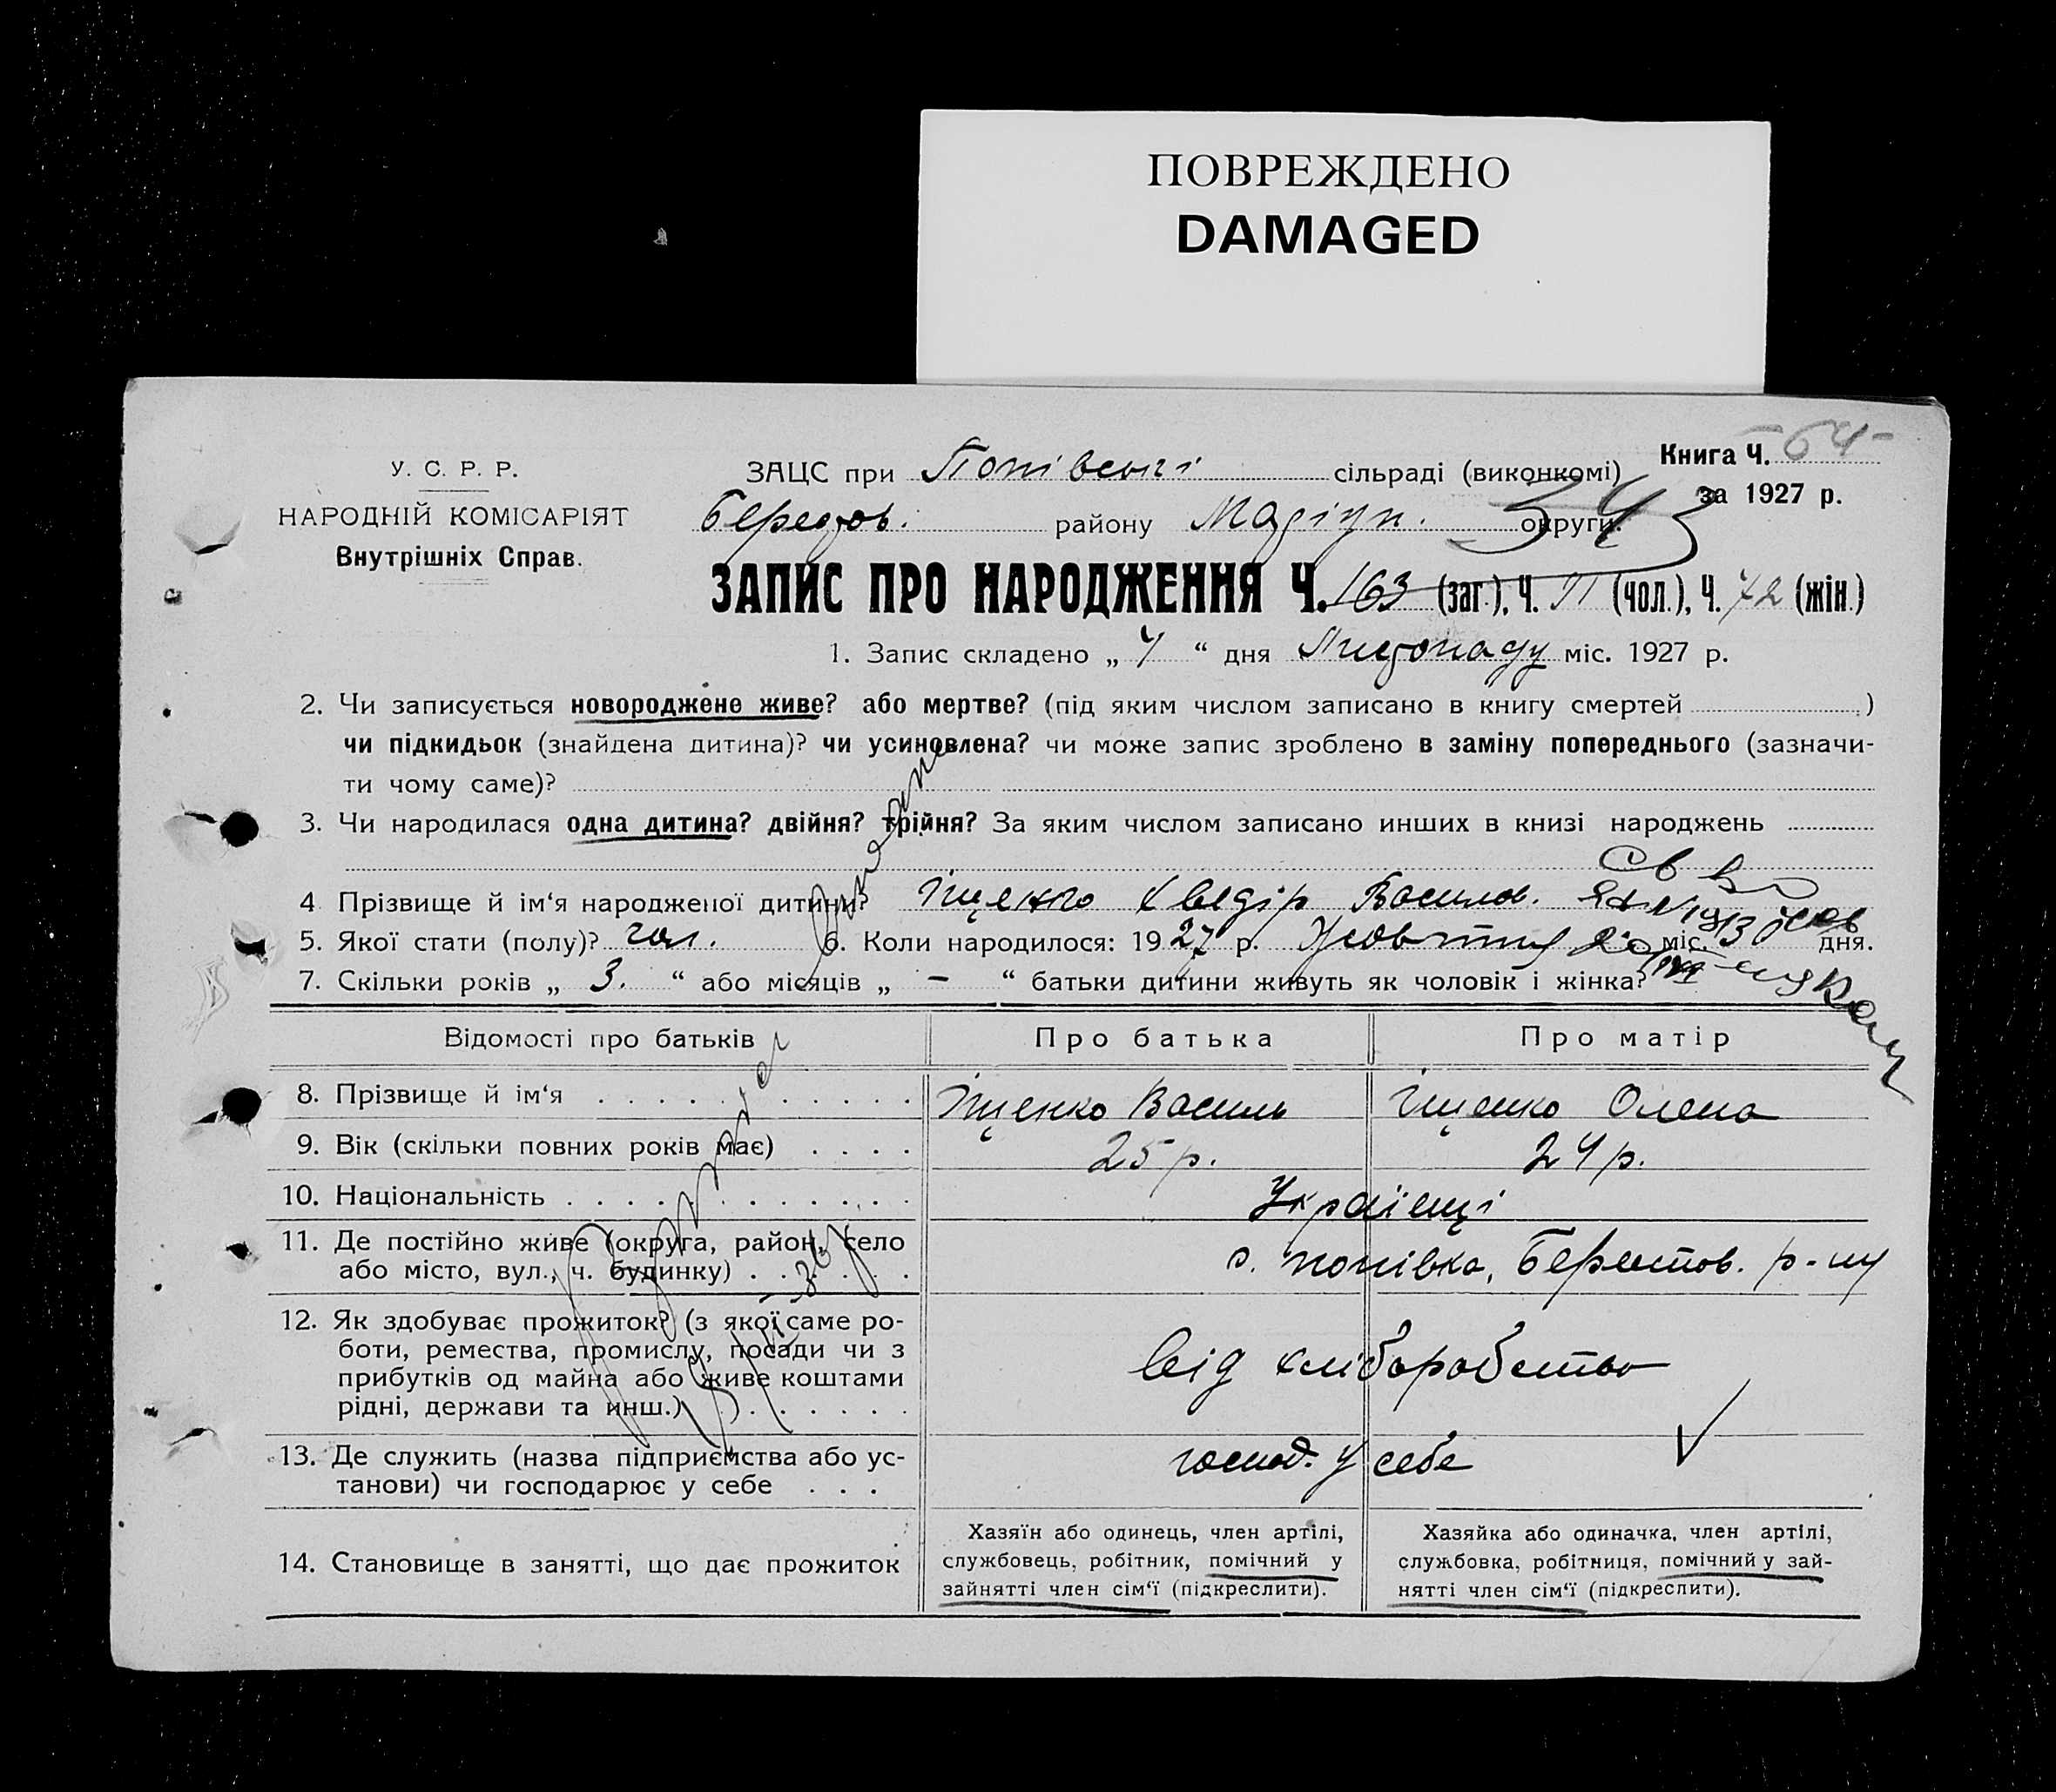 ПОВРЕЖДЕНО
DAMAGED
Книга Ч. 64
за 1927 р.
У. С. Р. Р.
НАРОДНІЙ КОМІСАРІЯТ
Внутрішніх Справ.
ЗАЦС при Попівські сільраді (виконкомі)
Берестов. району Маріуп. округи.
343
ЗАПИС ПРО НАРОДЖЕННЯ Ч. 163 (заг.), Ч. 91 (чол.), Ч. 72 (жін.)
1. Запис складено „ 4 “ дня Листопаду міс. 1927 р.
2. Чи записується новороджене живе? або мертве? (під яким числом записано в книгу смертей )
чи підкидьок (знайдена дитина)? чи усиновлена? чи може запис зроблено в заміну попереднього (зазначи-
ти чому саме)?
3. Чи народилася одна дитина? двійня? трійня? За яким числом записано инших в книзі народжень
4 Прізвище й ім‘я народженої дитини? Іщенко Хведір Василов.
5. Якої стати (полу)? чол. 6. Коли народилося: 1927 р. Жовтня міс. дня.
7. Скільки років „ 3. “ або місяців „ – “ батьки дитини живуть як чоловік і жінка?
Відомості про батьків Про батька Про матір
8. Прізвище й ім‘я Іщенко Василь Іщенко Олена
9. Вік (скільки повних років має) 25 р. 24 р.
10. Національність Українці
11. Де постійно живе (округа, район, село
або місто, вул., ч. будинку) с. Попівка, Берестов. р-ну
12. Як здобуває прожиток? (з якої саме ро-
боти, ремества, промислу, посади чи з
прибутків од майна або живе коштами
рідні, держави та инш.) від хліборобства
13. Де служить (назва підприємства або ус-
танови) чи господарює у себе господ. у себе
14. Становище в занятті, що дає прожиток
Хазяїн або одинець, член артілі,
службовець, робітник, помічний у
зайнятті член сім‘ї (підкреслити).
Хазяйка або одиначка, член артілі,
службовка, робітниця, помічний у зай-
нятті член сім‘ї (підкреслити).